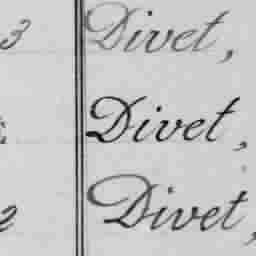 3 Divet,
Divet,
2 Divet,